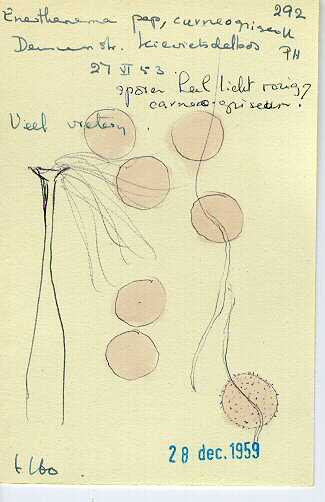 Enerthenema pap. carneogriseum 292
Dennenstr. Kievietsdelbos PH
27 VI 53
sporen heel licht rosig?
carneogriseum.
Veel vretery.
28 dec. 1959